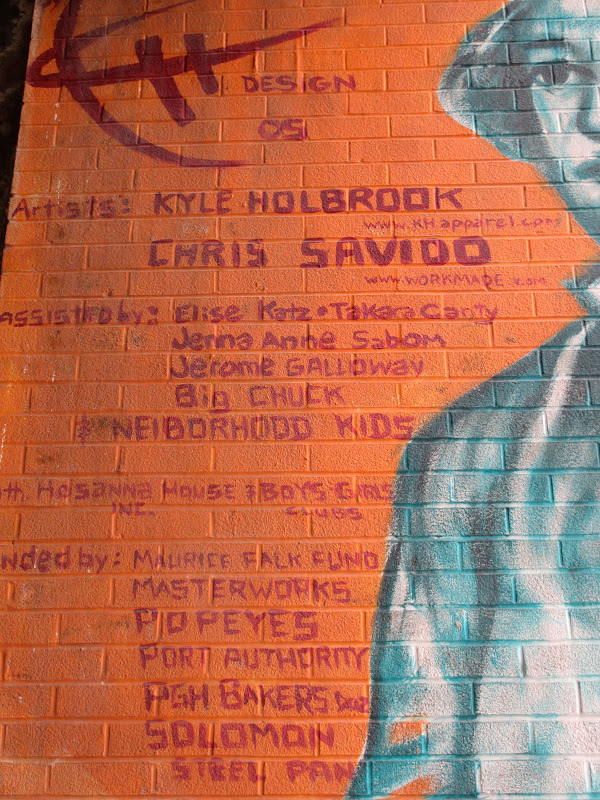 KH DESIGN
05
Artists: KYLE HOLBROOK
www.KHapparel.com
CHRIS SAVIDO
www.WORKMADE.com
ASSISTED by: Elise Katz • Takara Canty
Jenna Anne Sabom
Jerome GALLOWAY
Big CHUCK
& NEIBORHOOD KIDS
Hosanna House & BOYS GIRLS
INC. CLUBS
nded by: MAURICE FALK FUND
MASTERWORKS
POPEYES
PORT AUTHORITY
PGH BAKERS
SOLOMON
STEEL PAN